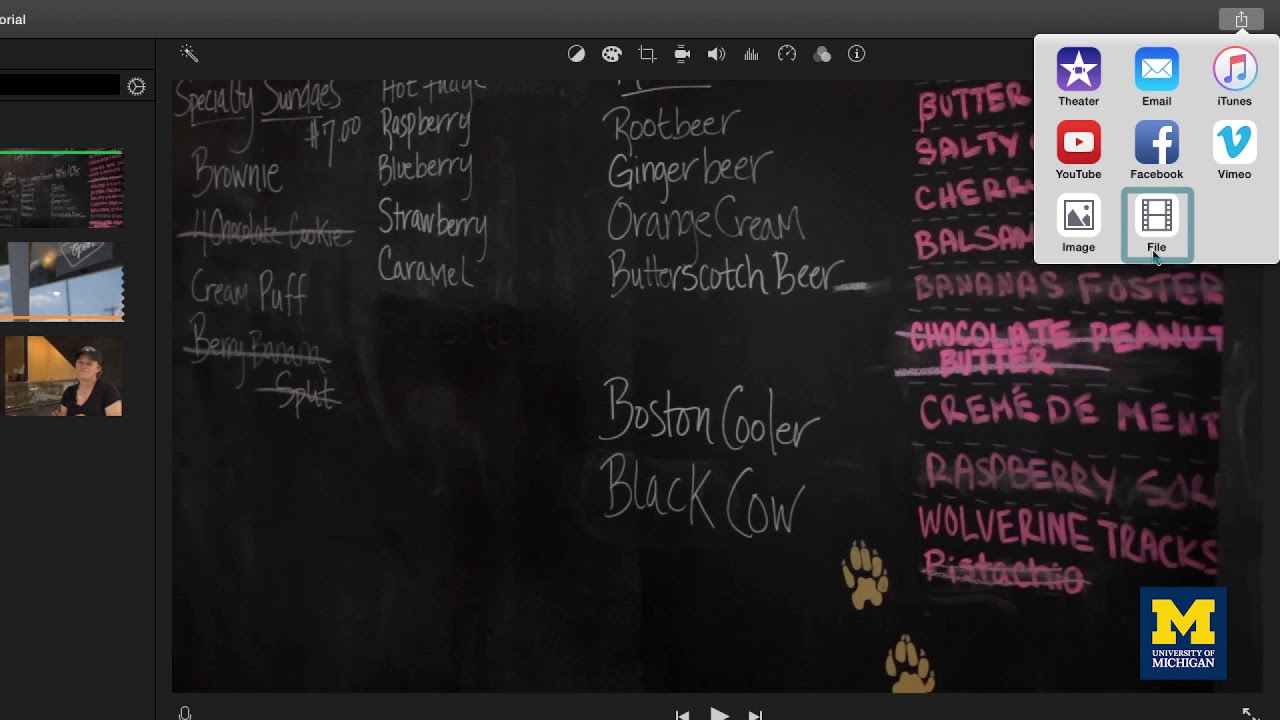 orial
Theater Email iTunes
YouTube Facebook Vimeo
Image File
Specialty Sundaes
$7.00
Brownie
4 Chocolate Cookie
Cream Puff
Berry Banana
Split
Hot fudge
Raspberry
Blueberry
Strawberry
Caramel
Rootbeer
Gingerbeer
Orange Cream
Butterscotch Beer
Boston Cooler
Black Cow
BUTTER
SALTY
CHERR
BALSAM
BANANAS FOSTER
CHOCOLATE PEANUT
BUTTER
CREMÉ DE MENT
RASPBERRY SOR
WOLVERINE TRACKS
Pistachio
M
UNIVERSITY OF
MICHIGAN